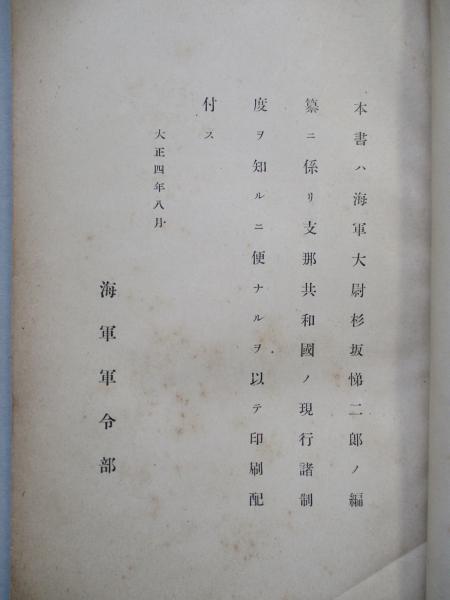 本書ハ海軍大尉杉坂悌二郎ノ編
纂ニ係リ支那共和國ノ現行諸制
度ヲ知ルニ便ナルヲ以テ印刷配
付ス
大正四年八月
海軍軍令部